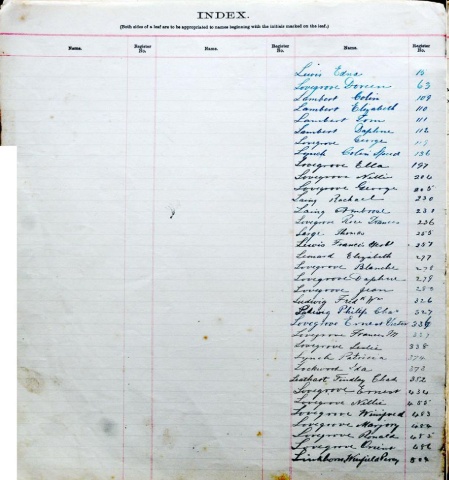 INDEX.
(Both sides of a leaf are to be appropriated to names beginning with the initials marked on the leaf.)
Name. Register No. Name. Register No. Name. Register No.
Lewis Edna
Lovegrove Doreen 63
Lambert Colin 109
Lambert Elizabeth 110
Lambert Tom 111
Lambert Daphne 112
Lovegrove George
Lynch Colin Speed 136
Lovegrove Ella 197
Lovegrove Nellie 204
Lovegrove George 205
Laing Rachael 230
Laing Ambrose 231
Lovegrove Rose Frances 236
Large Thomas 255
Lewis Francis 257
Leonard Elizabeth 277
Lovegrove Blanche 278
Lovegrove Daphne 279
Lovegrove Jean 280
Ludwig Fredk Wm 326
Ludwig Philip Chas 327
Lovegrove Ernest Victor 336
Lovegrove Frances M 337
Lovegrove Leslie 338
Lynch Patricia 374
Lockwood Ida 373
Leathart Findlay Chas 352
Lovegrove Ernest 454
Lovegrove Nellie 455
Lovegrove Winifred 483
Lovegrove Marjory 484
Lovegrove Ronald 485
Lovegrove 486
Linkborn Winfield Percy 504